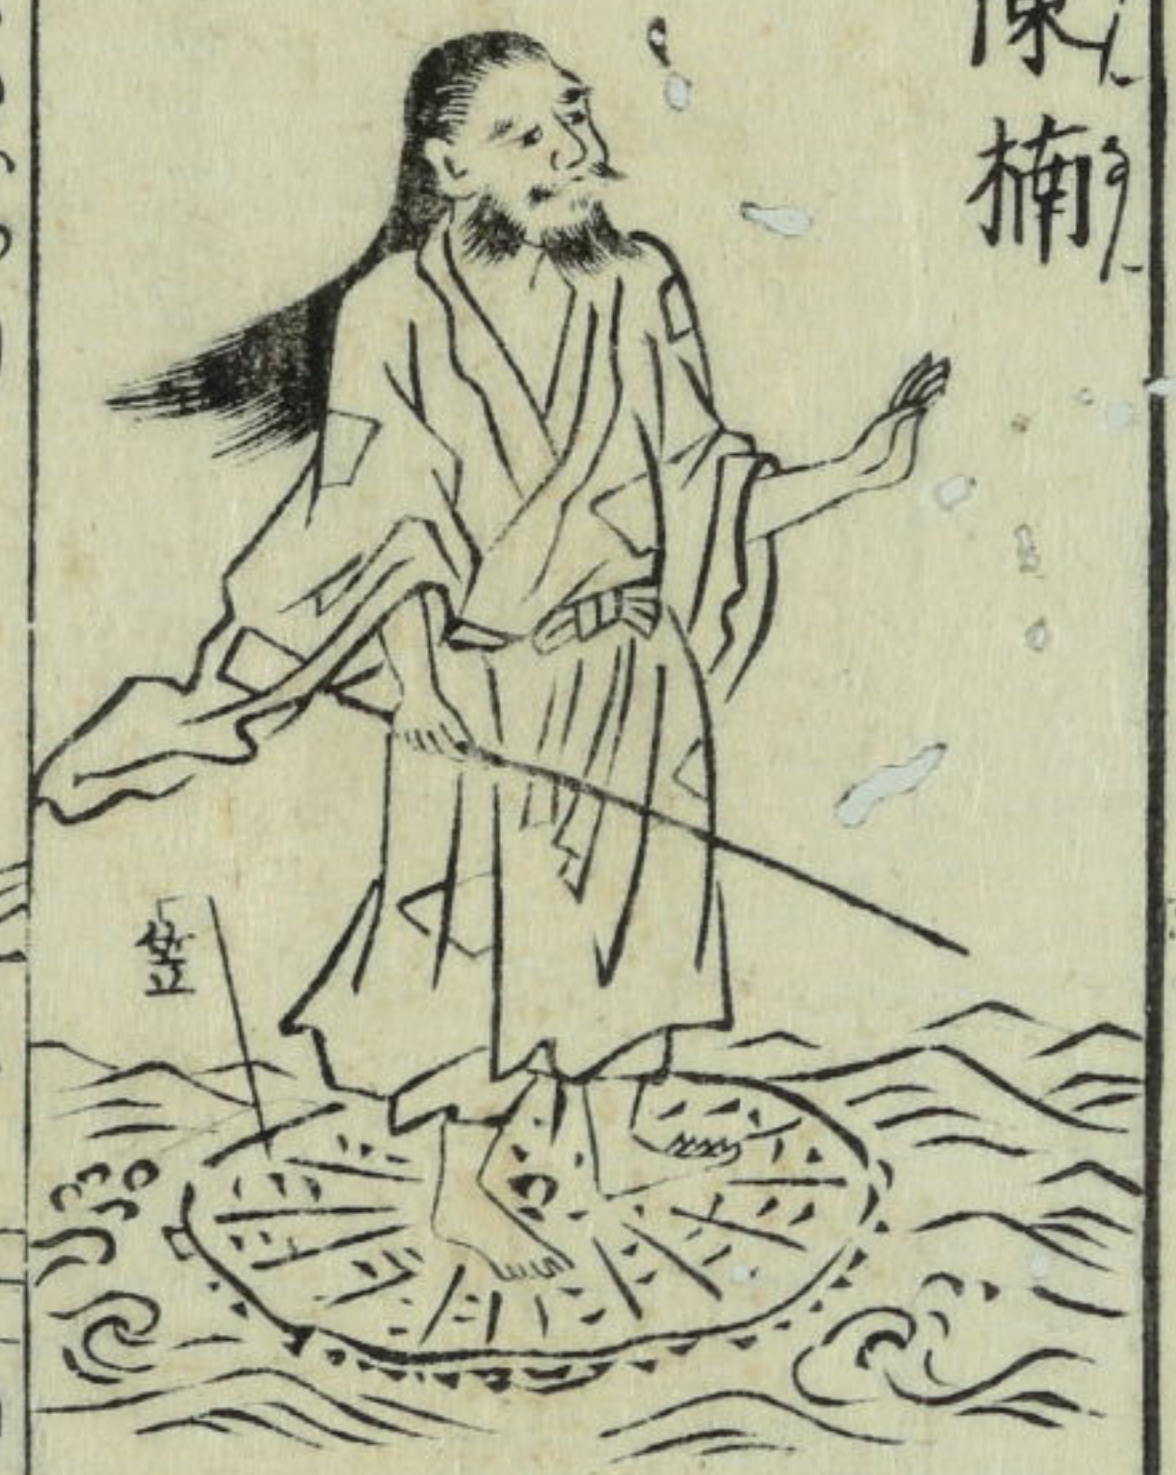 陳楠
ちんなん
笠